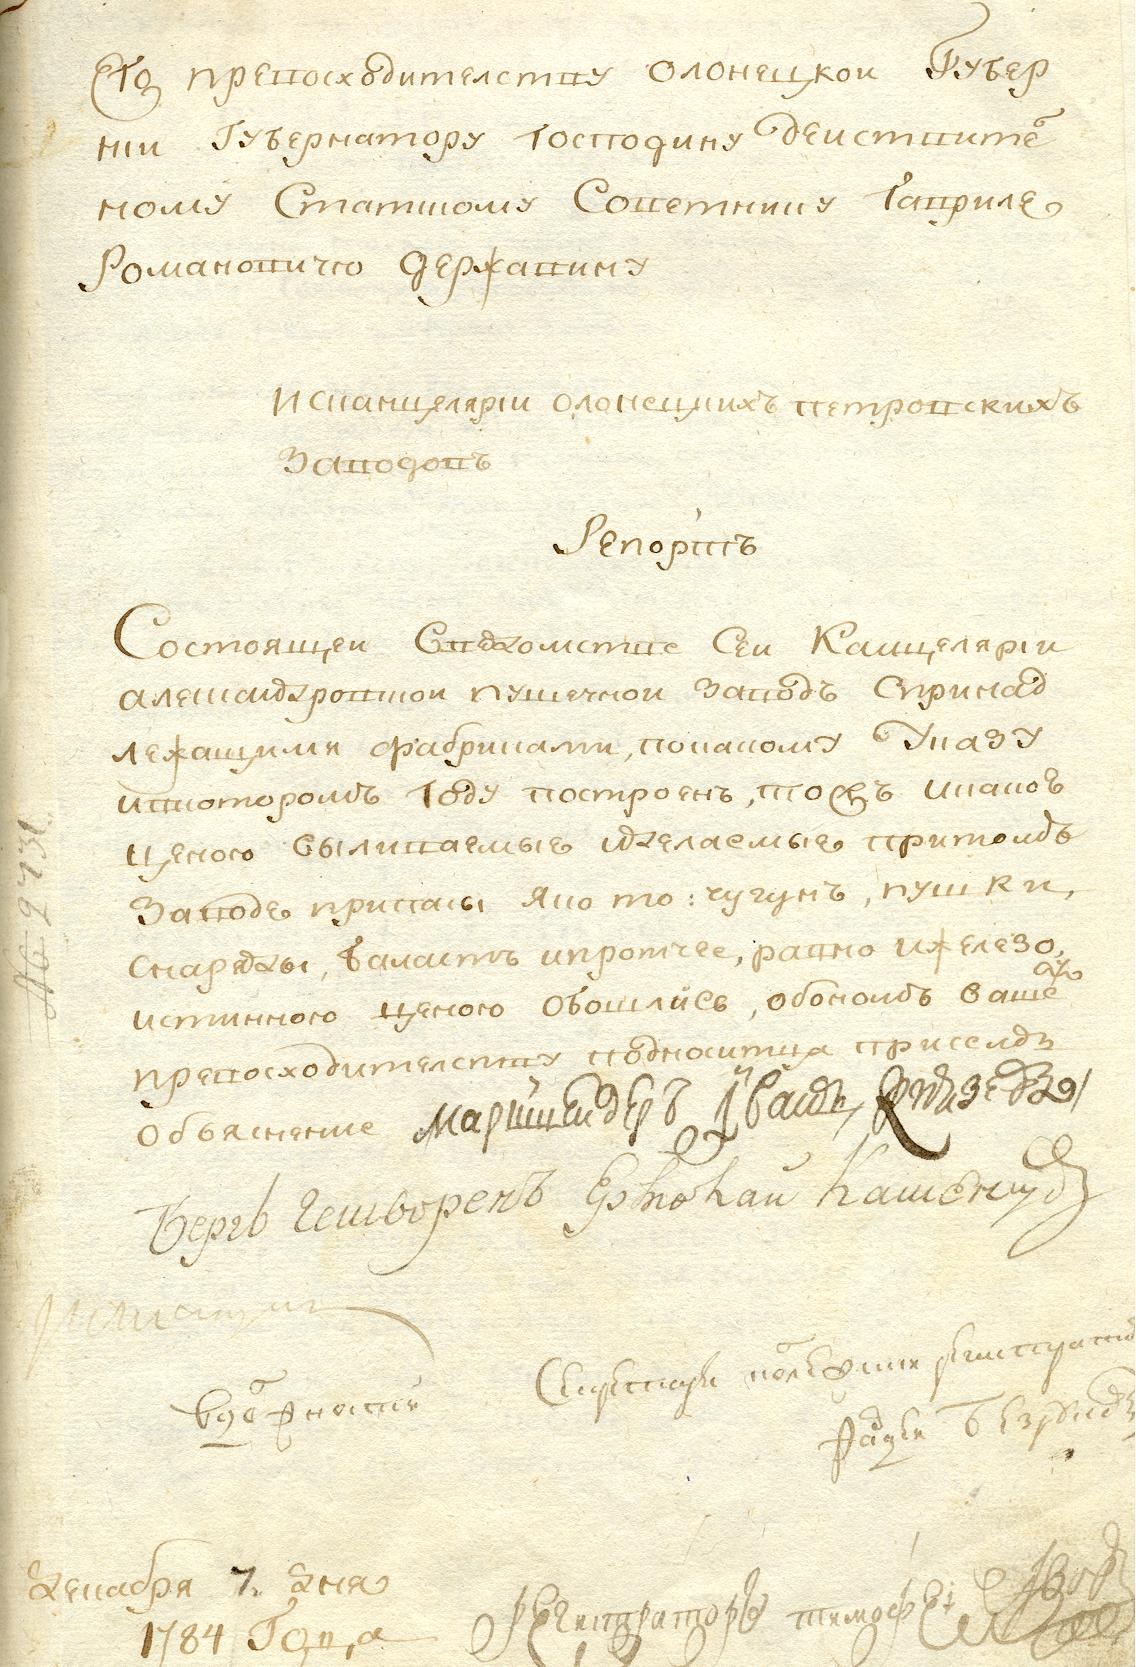 Его превосходителству олонецкой Губер
нии Губернатору Господину действите
ному Статскому Советнику Гавриле
Романовичю Державину
Ис канцелярии олонецких петровскихъ
Заводовъ
Репортъ
Состоящей Введомстве Сей Канцелярии
александровской пушечной заводъ Спринад
лежащими фабриками, покакому Указу
ивкоторомъ Году построенъ, тожъ икакою
ценою выливаемые иделаемые притомъ
Заводе припасы яко то: чугунъ, пушки,
снаряды, баластъ ипротчее, равно ижелезо,
истинною ценою Обошлись, обономъ Ваше
превосходителству подносится присемъ
Объяснение Маркшейдеръ Иванъ
Бергъ Гешворенъ
декабря 7. дня
1784 Года
Регистраторъ тимофей
№ 2731